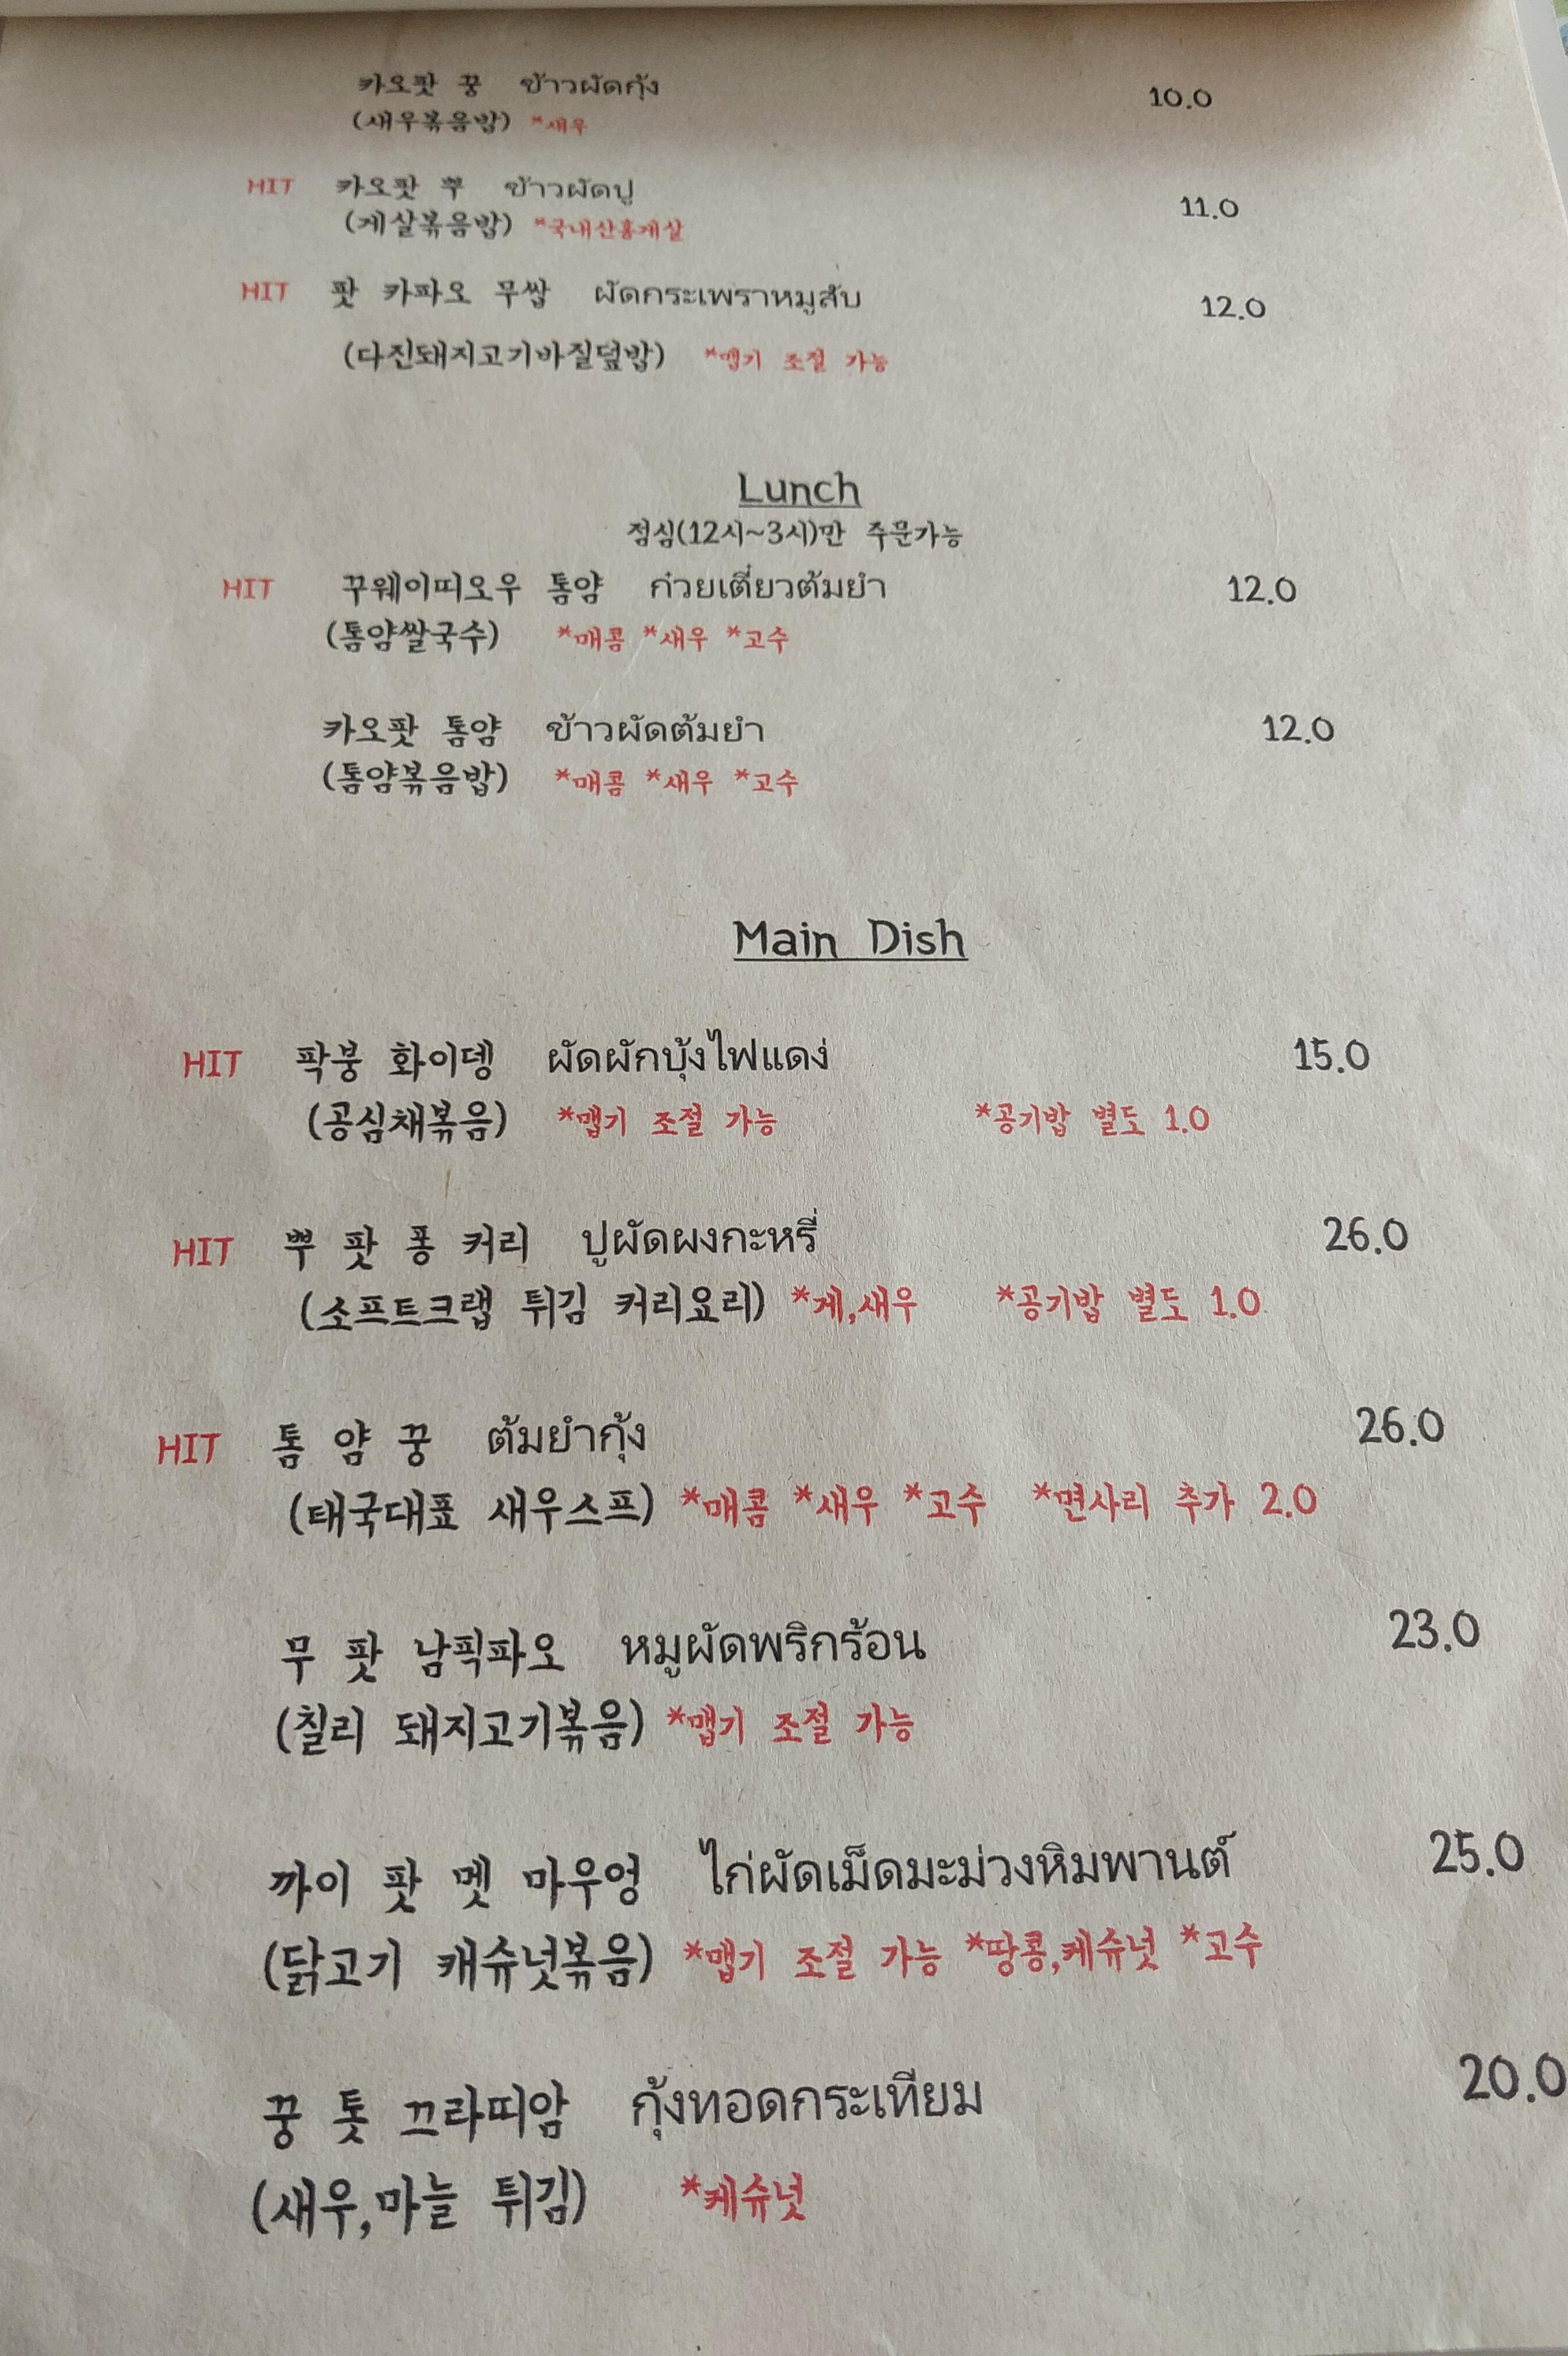 카오팟 꿍 ข้าวผัดกุ้ง 10.0
(새우볶음밥) *새우
HIT 카오팟 뿌 ข้าวผัดปู 11.0
(게살볶음밥) *국내산홍게살
HIT 팟 카파오 무쌉 ผัดกระเพราหมูสับ 12.0
(다진돼지고기바질덮밥) *맵기 조절 가능
Lunch
점심(12시~3시)만 주문가능
HIT 꾸웨이띠오우 톰얌 ก๋วยเตี๋ยวต้มยำ 12.0
(톰얌쌀국수) *매콤 *새우 *고수
카오팟 톰얌 ข้าวผัดต้มยำ 12.0
(톰얌볶음밥) *매콤 *새우 *고수
Main Dish
HIT 팍붕 화이뎅 ผัดผักบุ้งไฟแดง่ 15.0
(공심채볶음) *맵기 조절 가능 *공기밥 별도 1.0
HIT 뿌 팟 퐁 커리 ปูผัดผงกะหรี่ 26.0
(소프트크랩 튀김 커리요리) *게,새우 *공기밥 별도 1.0
HIT 톰 얌 꿍 ต้มยำกุ้ง 26.0
(태국대표 새우스프) *매콤 *새우 *고수 *면사리 추가 2.0
무 팟 남픽파오 หมูผัดพริกร้อน 23.0
(칠리 돼지고기볶음) *맵기 조절 가능
까이 팟 멧 마우엉 ไก่ผัดเม็ดมะม่วงหิมพานต์ 25.0
(닭고기 캐슈넛볶음) *맵기 조절 가능 *땅콩,케슈넛 *고수
꿍 톳 끄라띠암 กุ้งทอดกระเทียม 20.0
(새우,마늘 튀김) *케슈넛